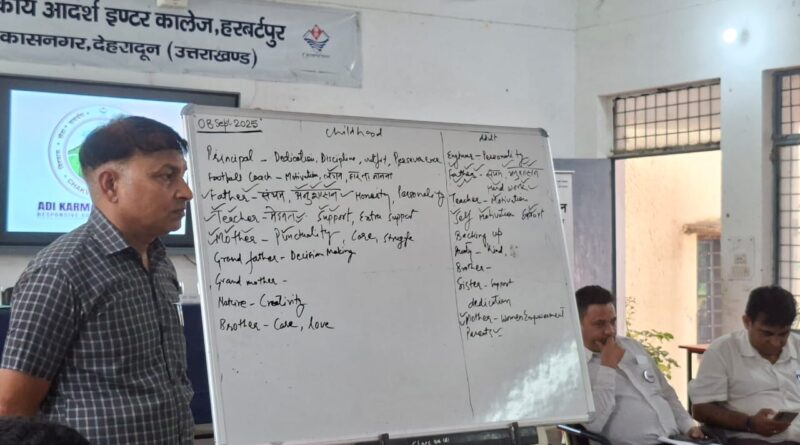 कीय आदर्श इण्टर कालेज, हरबर्टपुर
कासनगर, देहरादून (उत्तराखण्ड)
ADI KARM
RESPONSIVE
08 Sept. 2025
Childhood
Principal - Dedication, Discipline, Perseverence
Football Coach - Motivation, हार न मानना
Father - संयम, अनुशासन Honesty, Personality
Teacher - मेहनत Support, Extra Support
Mother - Punctuality, Care, Struggle
Grand father - Decision Making
Grand mother -
Nature - Creativity
Brother - Care, Love
Adult
Engineer - Personality
Father - संयम, अनुशासन
Hard work
Teacher - Motivation
Self Motivation Effort
Backing up
Kind
Brother -
Sister - Support
dedication
Mother - Women Empowerment
Parents